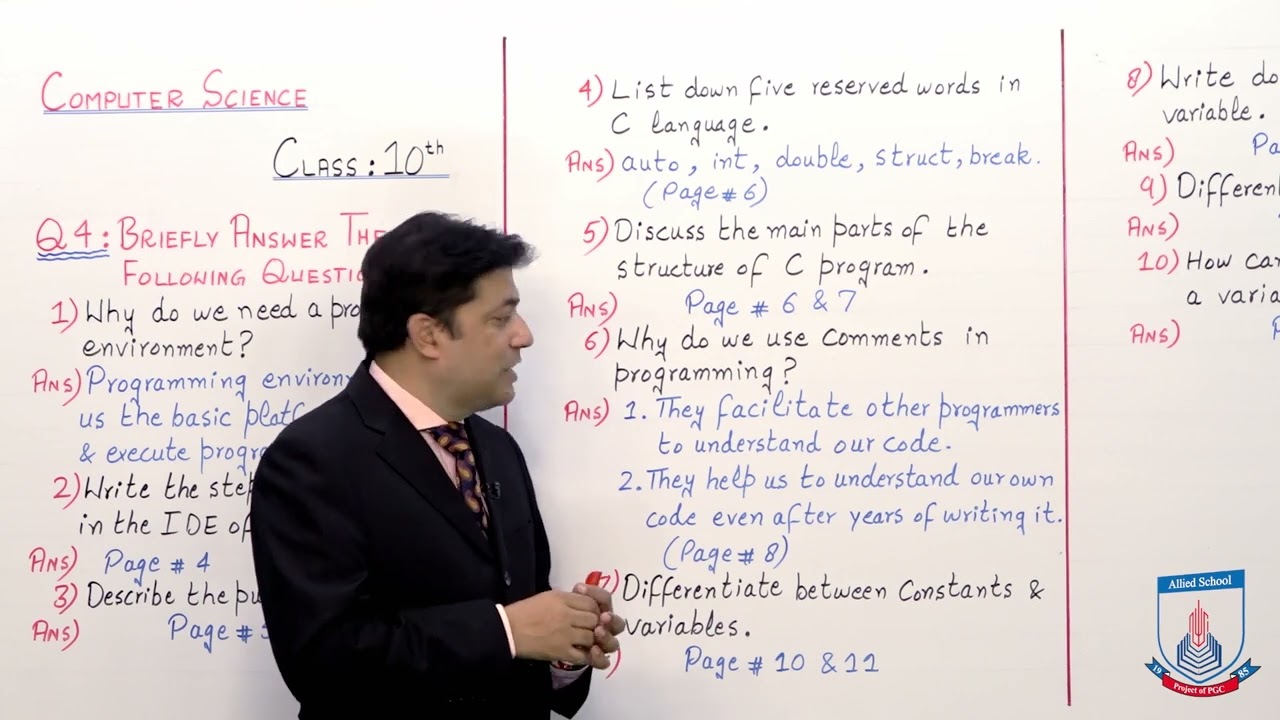 COMPUTER SCIENCE
CLASS: 10th
Q4: BRIEFLY ANSWER THE
FOLLOWING
1) Why do we need a
environment?
Ans) Programming
us the basic
& execute
2) Write the
in the IDE of
Ans) Page # 4
3) Describe the
Ans) Page #
4) List down five reserved words in
C language.
Ans) auto, int, double, struct, break.
(Page # 6)
5) Discuss the main parts of the
structure of C program.
Ans) Page # 6 & 7
6) Why do we use comments in
programming?
Ans) 1. They facilitate other programmers
to understand our code.
2. They help us to understand our own
code even after years of writing it.
(Page # 8)
7) Differentiate between Constants &
variables.
Page # 10 & 11
8) Write
variable.
Ans)
9)
Ans)
10) How
a
Ans)
Allied School
1985
Project of PGC